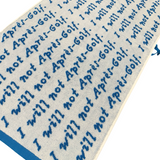 I will not Après-Golf.
I will not Après-Golf.
I will not Après-Golf.
I will not Après-Golf.
I will not Après-Golf.
I will not Après-Golf.